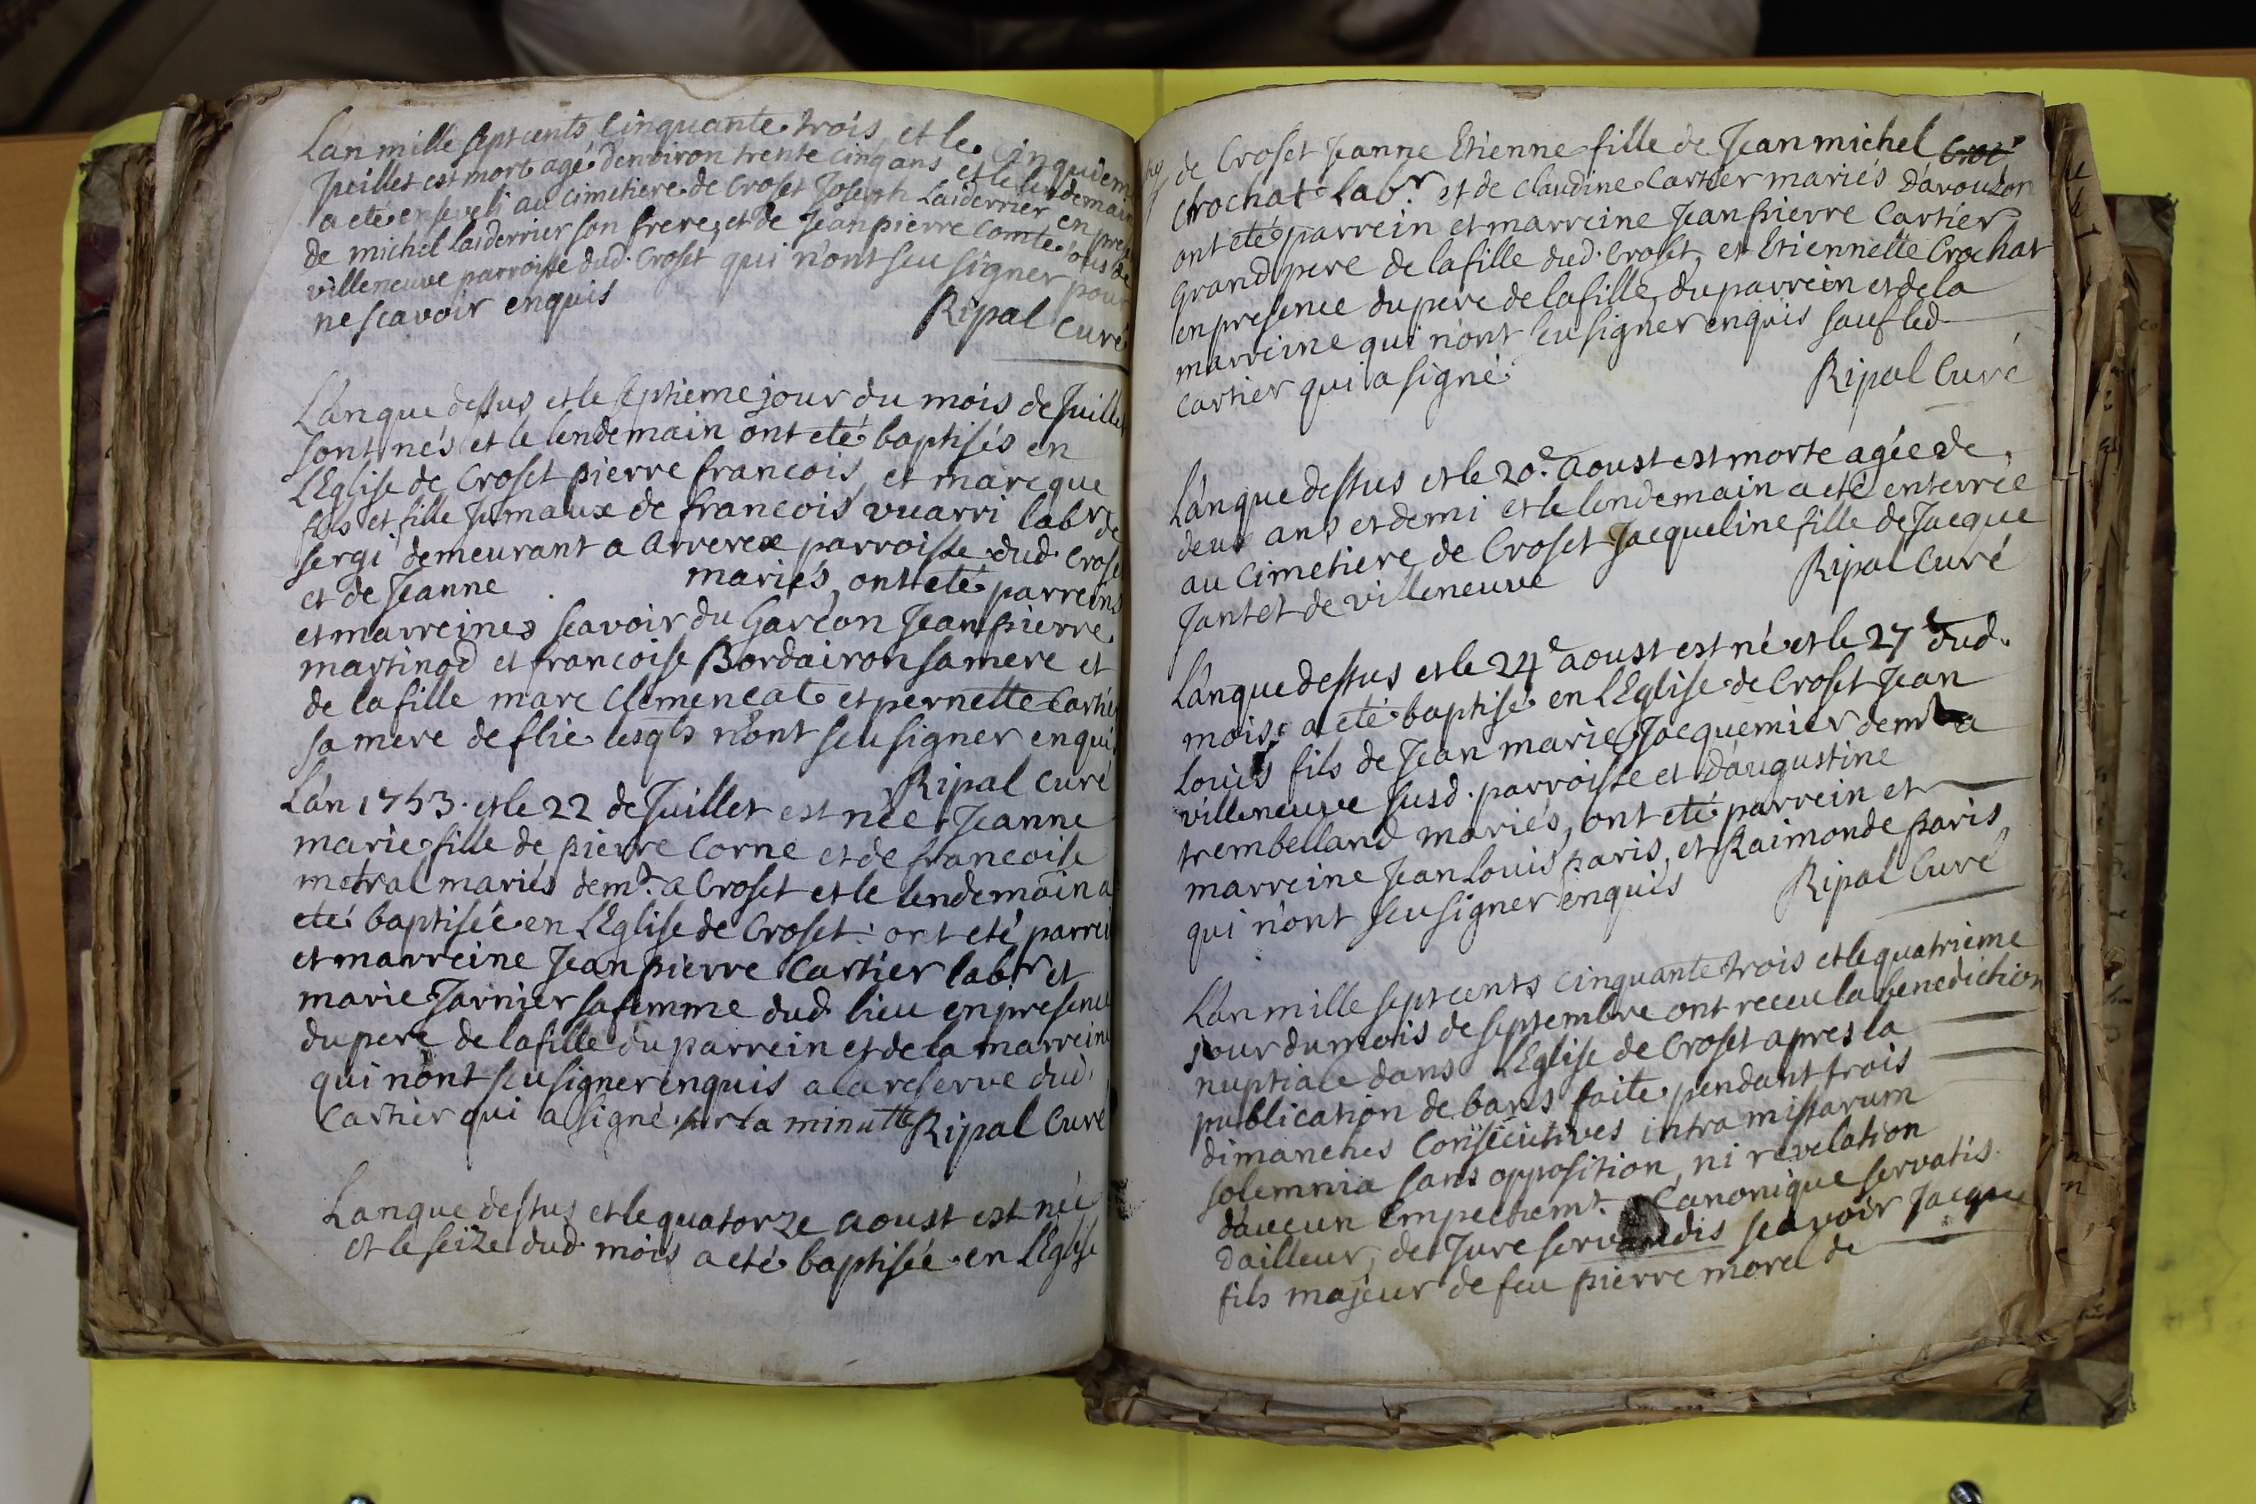 L'an mille sept cents cinquante trois, et le cinquiem
Jueillet est mort agé d'environ trente cinq ans et le lendemain
a eté enseveli au cimetiere de Croset Joseph Laiderrier en pre
de michel laiderrier son frere, et de Jean pierre Comte tous de
villeneuve parroisse dud. Croset qui n'ont seu signer pour
ne scavoir enquis
Ripal Curé
L'an que dessus et le septieme jour du mois de Juillet
sont nés et le lendemain ont eté baptisés en
L'Eglise de Croset pierre francois, et marc que
fils et fille Jumaux de francois vuarri labr de
sergi demeurant a arverex parroisse dud. Croset
et de Jeanne mariés, ont eté parreins
et marreines scavoir du Garcon Jean pierre
martinod et francoise Bordairon sa mere et
de la fille marc Clemencat et pernette Cartier
sa mere de flie lesqls n'ont seu signer enqui
Ripal Curé
L'an 1753. et le 22 de Juillet est née Jeanne
marie fille de pierre Corne et de francoise
metral mariés demt. a Croset et le lendemain a
eté baptisée en L'Eglise de Croset: ont eté parrei
et marreine Jean pierre Cartier labr. et
marie Jarnier sa femme dud. lieu en presence
du pere de la fille du parrein et de la marreine
qui n'ont seu signer enquis a la reserve dud.
Cartier qui a signé sur la minutte Ripal Curé
L'an que dessus et le quatorze aoust est née
et le seize dud. mois a eté baptisée en L'Eglise
de Croset Jeanne Etienne fille de Jean michel Croc
Crochat labr. et de Claudine Cartier mariés d'avouzon
ont eté parrein et marreine Jean pierre Cartier
grand pere de la fille dud. Croset, et Etiennette Crochat
en presence du pere de la fille, du parrein et de la
marreine qui n'ont seu signer enquis sauf led.
Cartier qui a signé.
Ripal Curé
L'an que dessus et le 20e. aoust est morte agée de
deux ans et demi et le lendemain a eté enterrée
au Cimetiere de Croset Jacqueline fille de Jacque
Jantet de villeneuve Ripal Curé
L'an que dessus et le 24e aoust est né et le 27e dud.
mois a eté baptisé en L'Eglise de Croset Jean
Louis fils de Jean marie Jacquemier demt a
villeneuve susd. parroisse et d'augustine
trembelland mariés, ont eté parrein et
marreine Jean Louis paris, et Raimonde paris
qui n'ont seu signer enquis Ripal Curé
L'an mille sept cents cinquante trois et le quatrieme
jour du mois de septembre ont receu la benediction
nuptiale dans L'Eglise de Croset apres la
publication de bans faite pendant trois
dimanches consecutives intra missarum
solemnia sans opposition, ni revelation
d'aucun empechemt. Canonique servatis
d'ailleur, de Jure servandis scavoir Jacque
fils majeur de feu pierre morel de